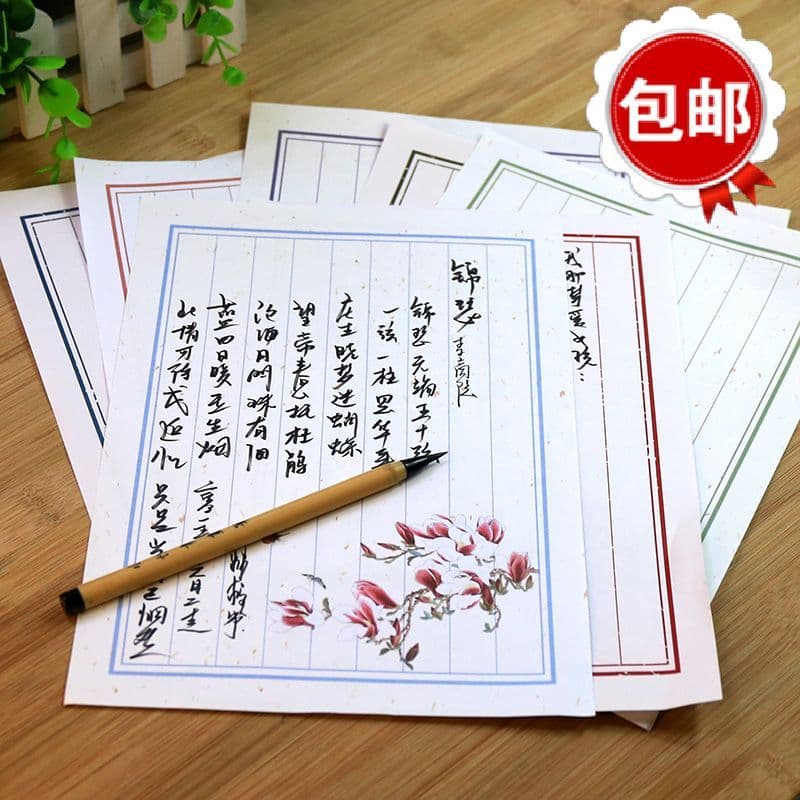 包邮
锦瑟
李商隐
锦瑟无端五十弦
一弦一柱思华
庄生晓梦迷蝴蝶
望帝春心托杜鹃
沧海月明珠有泪
蓝田日暖玉生烟
此情可待成追忆
只是当 已惘然